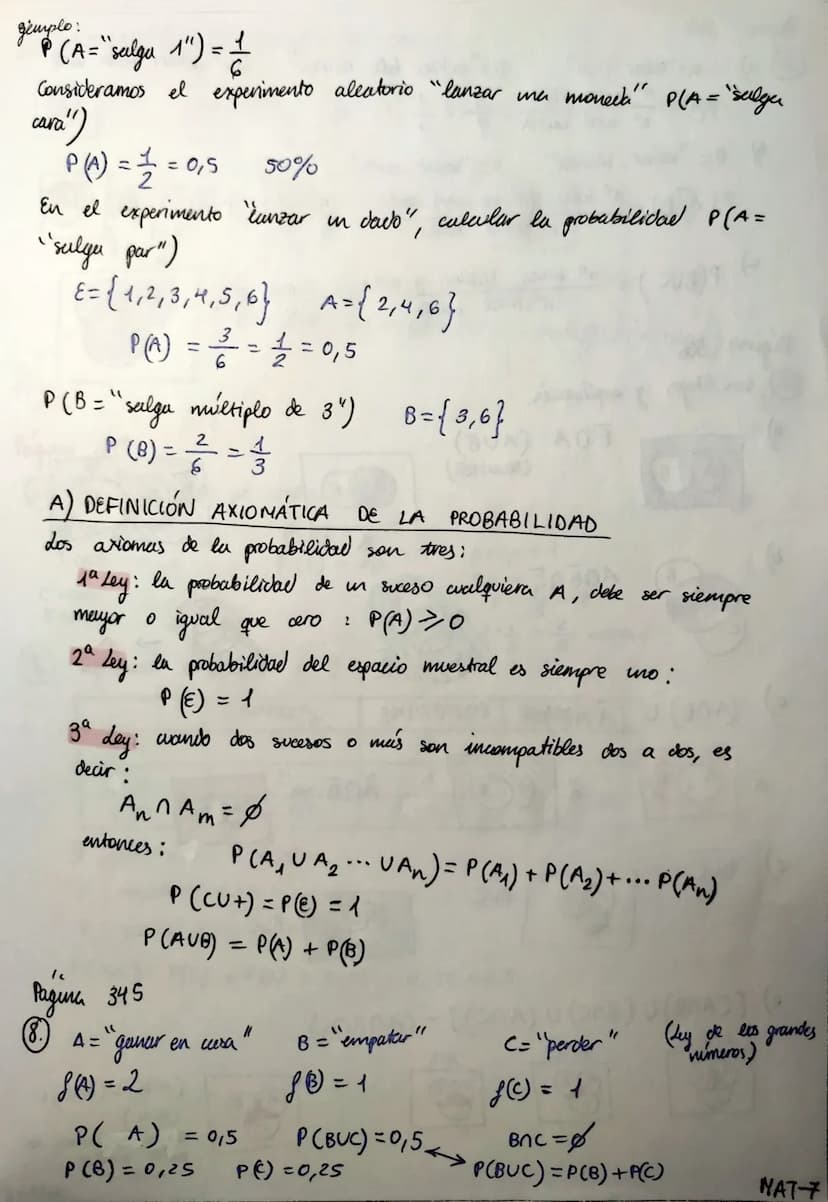 ejemplo:
P(A="salga 1")=1/6
Consideramos el experimento aleatorio "lanzar una moneda" P(A="salga
cara")
P(A)=1/2=0,5 50%
En el experimento "lanzar un dado", calcular la probabilidad P(A=
"salga par")
E={1,2,3,4,5,6} A={2,4,6}
P(A)=3/6=1/2=0,5
P(B="salga múltiplo de 3") B={3,6}
P(B)=2/6=1/3
A) DEFINICIÓN AXIOMÁTICA DE LA PROBABILIDAD
Los axiomas de la probabilidad son tres:
1ª Ley: la probabilidad de un suceso cualquiera A, debe ser siempre
mayor o igual que cero : P(A)⩾0
2ª Ley: la probabilidad del espacio muestral es siempre uno:
P(E)=1
3ª Ley: cuando dos sucesos o más son incompatibles dos a dos, es
decir:
An∩Am=∅
entonces: P(A1∪A2...∪An)=P(A1)+P(A2)+...P(An)
P(C∪+)=P(E)=1
P(A∪B)=P(A)+P(B)
Página 345
8. A="ganar en casa" B="empatar" C="perder" (Ley de los grandes
números)
f(A)=2 f(B)=1 f(C)=1
P( A)=0,5 P(B∪C)=0,5 B∩C=∅
P(B)=0,25 P(C)=0,25 P(B∪C)=P(B)+P(C)
MAT-7